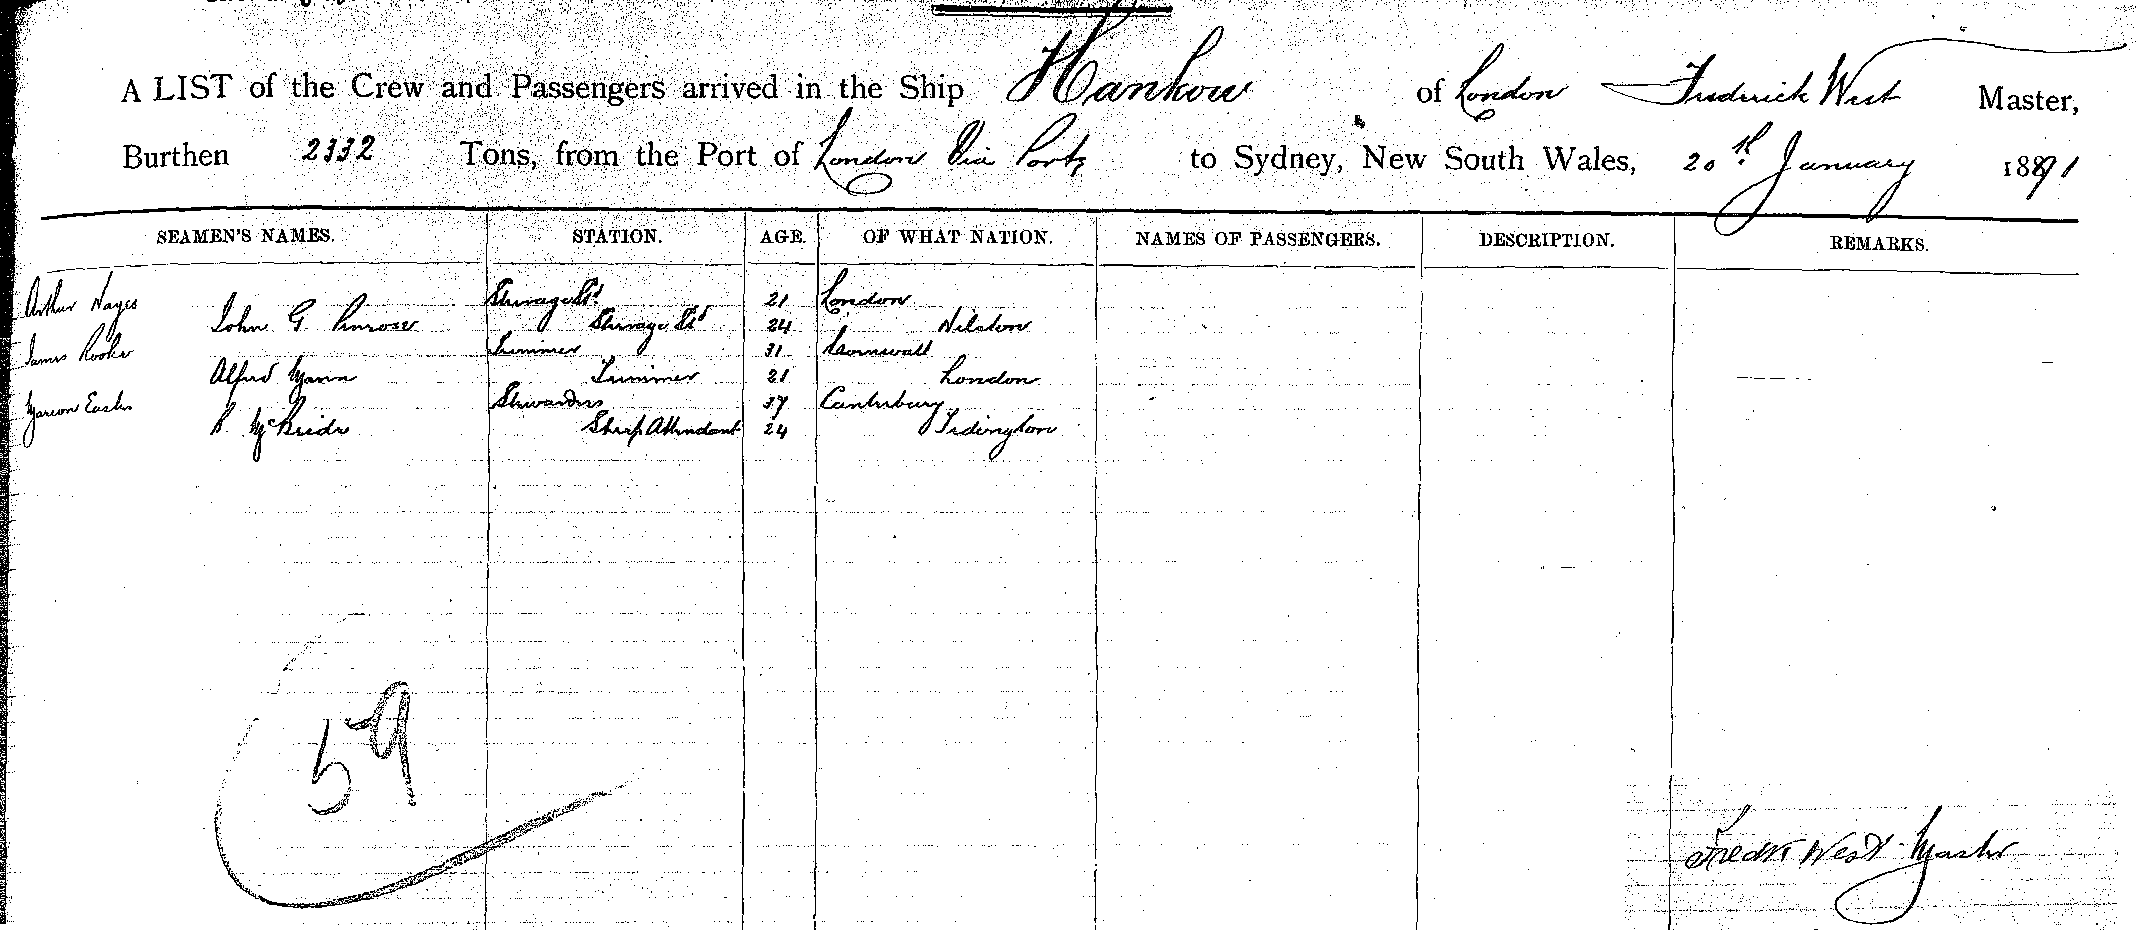 A LIST of the Crew and Passengers arrived in the Ship Hankow of London Frederick West Master,
Burthen 2332 Tons, from the Port of London Via Ports to Sydney, New South Wales, 20th January 1891
SEAMEN'S NAMES. STATION. AGE. OF WHAT NATION. NAMES OF PASSENGERS. DESCRIPTION. REMARKS.
Arthur Hayes Steerage Std 21 London
John G Primrose Steerage Std 24 Wilston
James Rooke Trimmer 31 Cornwall
Alfred Mann Trimmer 21 London
Marion Eastes Stewardess 37 Canterbury
R McBride Sheep Attendant 24 Tedington
59
Fredk West Master